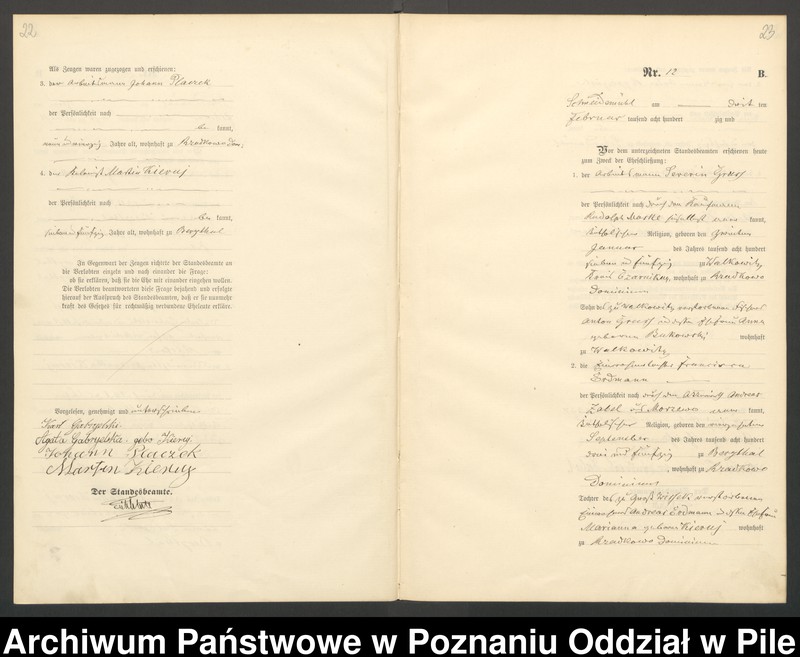 22
Als Zeugen waren zugezogen und erschienen:
3. der Arbeitsmann Johann Placzek
der Persönlichkeit nach
be kannt,
Jahre alt, wohnhaft zu Kradkowo Dom.
4. der Mathis Kieruj
der Persönlichkeit nach
be kannt,
sieben und fünfzig Jahre alt, wohnhaft zu Bergthal
In Gegenwart der Zeugen richtete der Standesbeamte an
die Verlobten einzeln und nach einander die Frage:
ob sie erklären, daß sie die Ehe mit einander eingehen wollen.
Die Verlobten beantworteten diese Frage bejahend und erfolgte
hierauf der Ausspruch des Standesbeamten, daß er sie nunmehr
kraft des Gesetzes für rechtmäßig verbundene Eheleute erkläre.
Vorgelesen, genehmigt und unterschrieben
Karl Gabryelski
Agata Gabryelska gebo. Kieruj.
Johann Placzek
Martin Kieruj
Der Standesbeamte.
23
Nr. 12
B.
Schneidemühl am ten
Februar tausend acht hundert zig und
Vor dem unterzeichneten Standesbeamten erschienen heute
zum Zweck der Eheschließung:
1. der Arbeitsmann Severin
der Persönlichkeit nach durch den Kaufmann
Rudolf kannt,
katholischer Religion, geboren den
Januar des Jahres tausend acht hundert
sieben und fünfzig zu Walkowitz
Kreis Czarnikau, wohnhaft zu Kradkowo
Dominium
Sohn des zu Walkowitz verstorbenen
Anton und dessen Ehefrau Anna
geborene Bukowski wohnhaft
zu Walkowitz
2. die Einwohnertochter
Erdmann
der Persönlichkeit nach durch den Andreas
Zabel kannt,
katholischer Religion, geboren den
September des Jahres tausend acht hundert
drei und fünfzig zu Bergthal
, wohnhaft zu Kradkowo
Dominium
Tochter des zu Groß verstorbenen
Andreas Erdmann und dessen Ehefrau
Marianna geborene Kieruj wohnhaft
zu Kradkowo Dominium
Archiwum Państwowe w Poznaniu Oddział w Pile